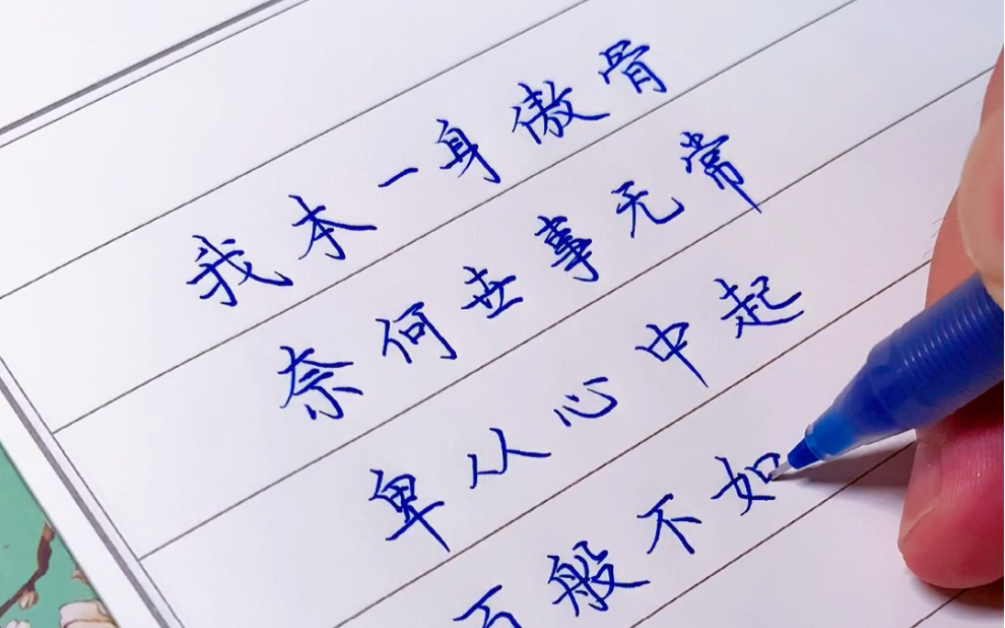 我本一身傲骨
奈何世事无常
卑从心中起
百般不如